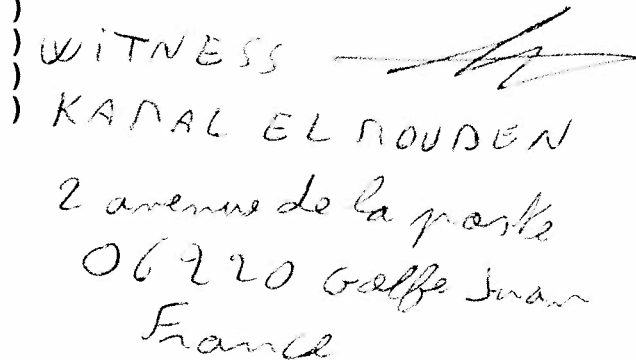 WITNESS
KAMAL EL MOUDEN
2 avenue de la poste
06220 Golfe Juan
France